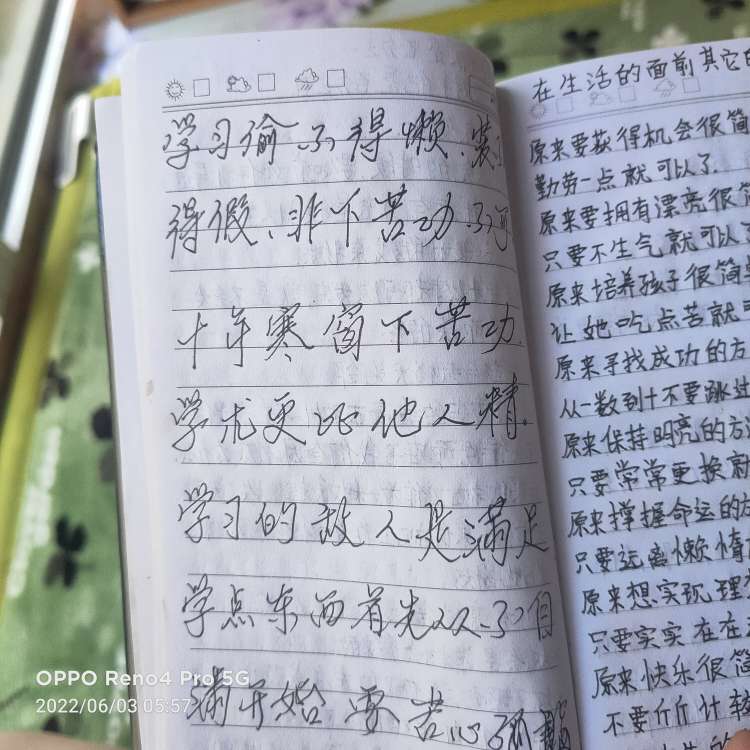 学习偷不得懒、装
得假、非下苦功不可
十年寒窗下苦功.
学术更比他人精.
学习的敌人是满足
学点东西首先从不自
满开始 要苦心孤
在生活的面前其它
原来要获得机会很简
勤劳一点就可以了.
原来要拥有漂亮很简
只要不生气就可以了
原来培养孩子很简
让她吃点苦就
原来寻找成功的方
从一数到十不要跳过
原来保持明亮的方
只要常常更换
原来掌握命运的
只要远离懒惰
原来想实现理
只要实实在在
原来快乐很简
不要斤斤计较
OPPO Reno4 Pro 5G
2022/06/03 05:57